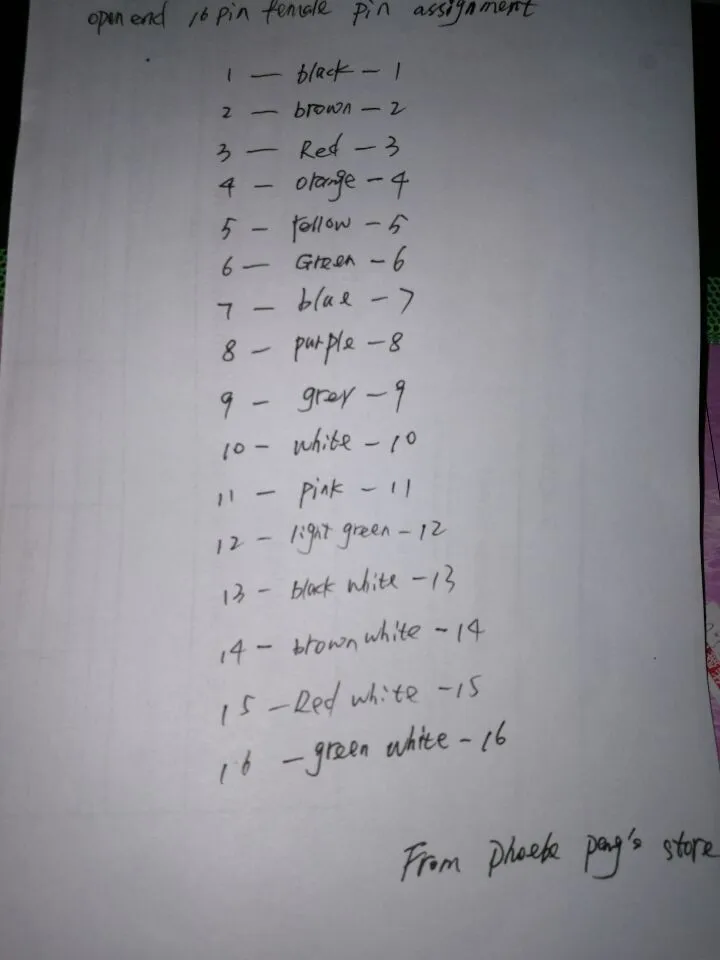 open end 16 pin female pin assignment
1 — black — 1
2 — brown — 2
3 — Red — 3
4 — orange — 4
5 — Yellow — 5
6 — Green — 6
7 — blue — 7
8 — purple — 8
9 — grey — 9
10 — white — 10
11 — pink — 11
12 — light green — 12
13 — black white — 13
14 — brown white — 14
15 — Red white — 15
16 — green white — 16
From phoebe peng's store